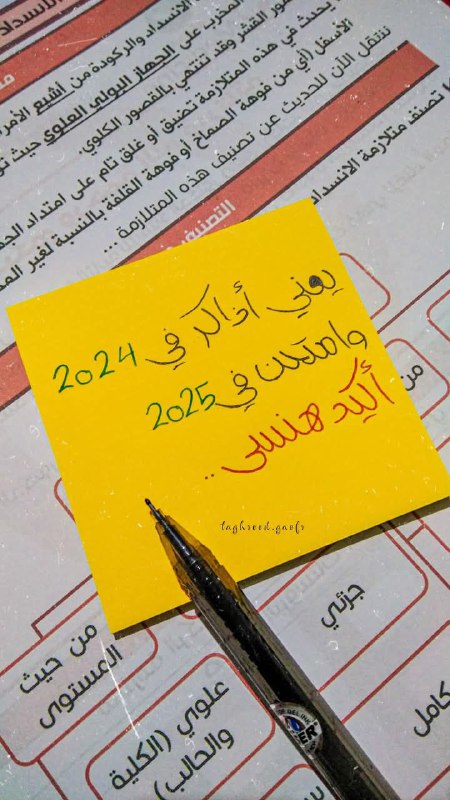 الانسداد
المخرب على الجهاز البولي العلوي حيث
الانسداد والركودة من أشيع الأمراض
التقشر وقد تنتهي بالقصور الكلوي
يحدث في هذه المتلازمة تضيق أو غلق تام على امتداد
الأسفل (أي من فوهة الصماخ أو فوهة القلفة بالنسبة لغير
ننتقل الآن للحديث عن تصنيف هذه المتلازمة ...
تصنف متلازمة الانسداد
التصنيف
يعني أذاكر في 2024
وامتحن في 2025
أكيد هنسى ..
taghreed.gaafr
من
جزئي
كامل
من حيث
المستوى
علوي (الكلية
والحالب)